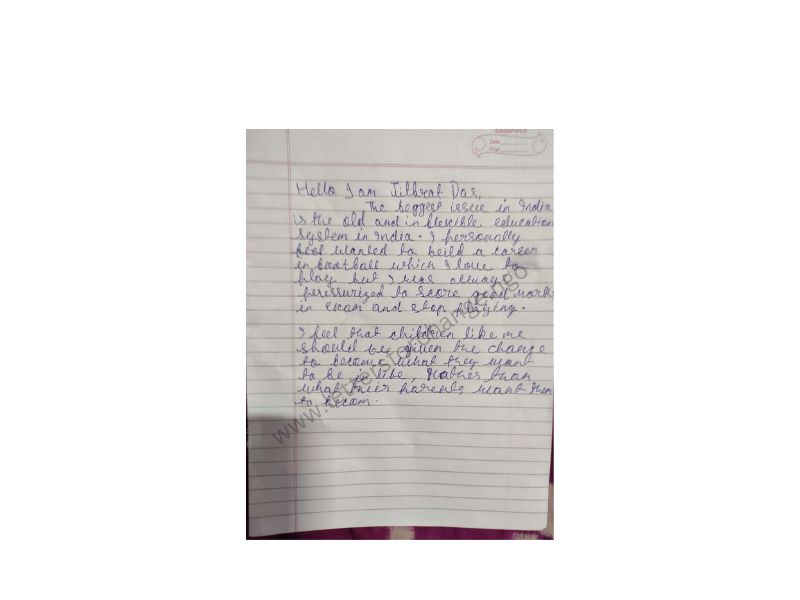 CLASSMATE
Date
Page
Hello I am Jitbrat Das,
The beggest issue in India
is the old and in flexcible education
system in India. I personally
feel wanted to beild a career
in football which I love to
play but I was always
perssurized to score good marks
in exam and stop playing.
I feel that children like me
should be given the change
to become what they want
to be is libe, Rather than
what their parents want them
to becom.
www.lettersforchange.ngo